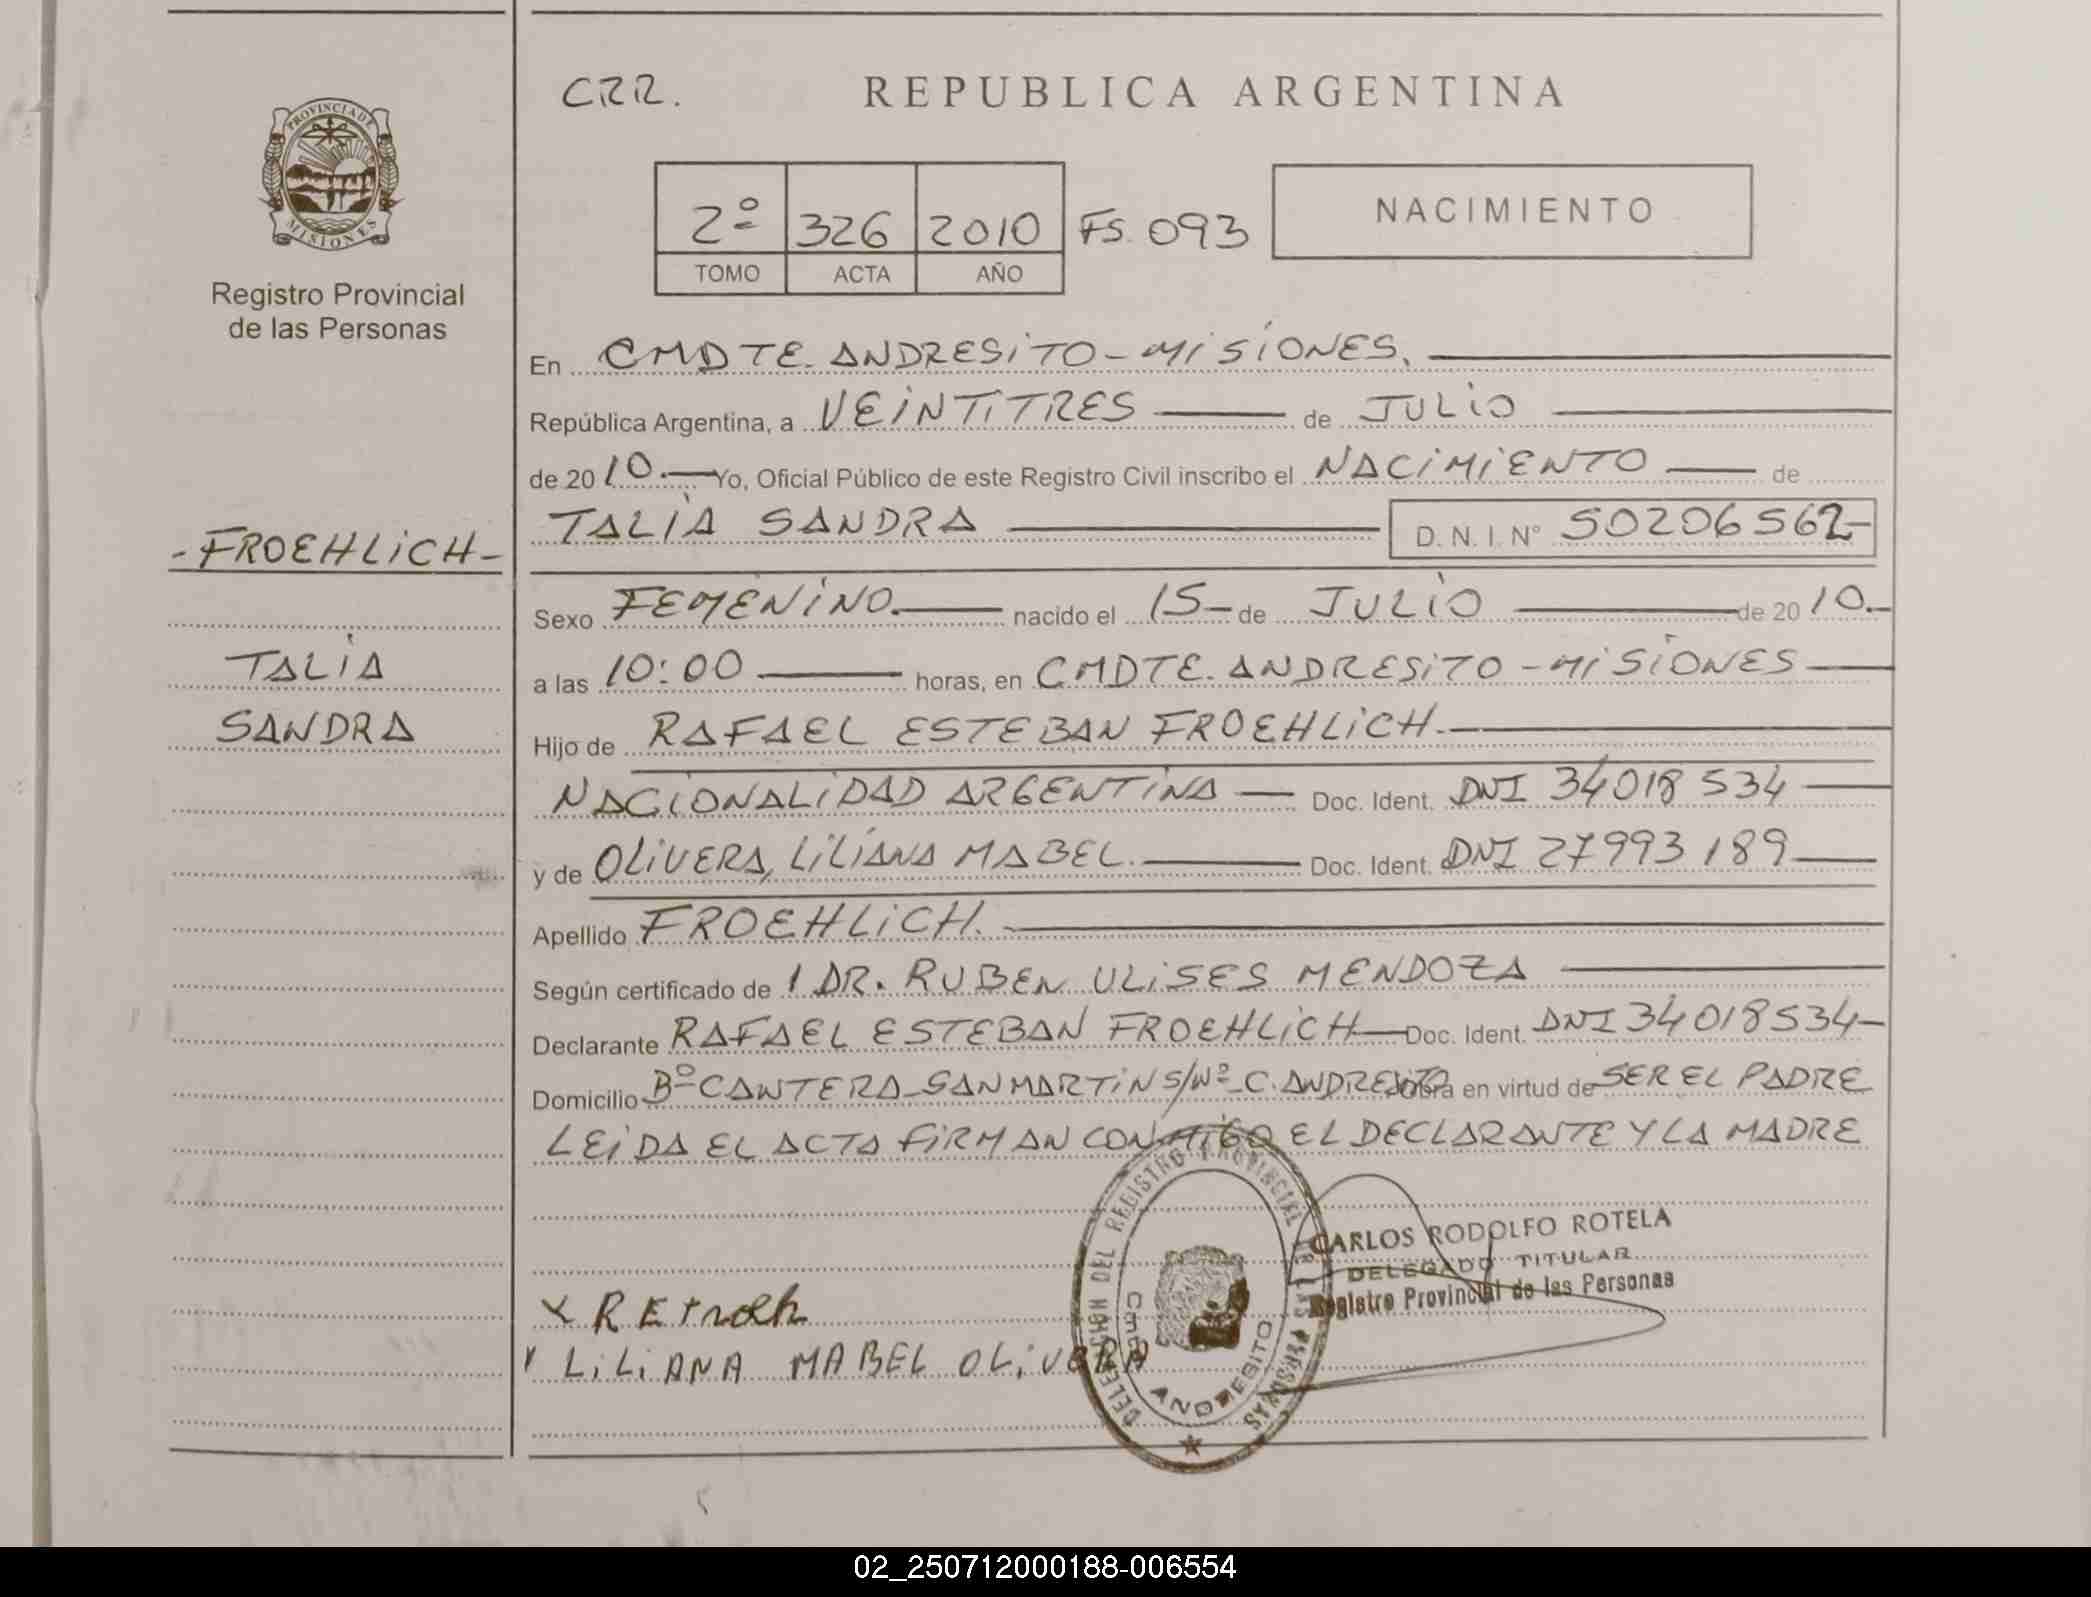 CRR.
REPUBLICA ARGENTINA
PROVINCIA DE
MISIONES
Registro Provincial
de las Personas
2º 326 2010 FS. 093
TOMO ACTA AÑO
NACIMIENTO
En CMDTE. ANDRESITO - MISIONES.
República Argentina, a VEINTITRES de JULIO
de 2010. Yo, Oficial Público de este Registro Civil inscribo el NACIMIENTO de
TALIA SANDRA D. N. I. Nº 50206562-
- FROEHLICH -
TALIA
SANDRA
Sexo FEMENINO. nacido el 15 de JULIO de 2010.-
a las 10:00 horas, en CMDTE. ANDRESITO - MISIONES
Hijo de RAFAEL ESTEBAN FROEHLICH.
NACIONALIDAD ARGENTINA Doc. Ident. DNI 34018534
y de OLIVERA, LILIANA MABEL. Doc. Ident. DNI 27993189
Apellido FROEHLICH.
Según certificado de 1 DR. RUBEN ULISES MENDOZA
Declarante RAFAEL ESTEBAN FROEHLICH Doc. Ident. DNI 34018534-
Domicilio Bº CANTERA-SAN MARTIN S/Nº-C. ANDRESITO obra en virtud de SER EL PADRE
LEIDA EL ACTA FIRMAN CONMIGO EL DECLARANTE Y LA MADRE
DELEGACION DEL REGISTRO PROVINCIAL DE LAS PERSONAS
CMDTE. ANDRESITO
CARLOS RODOLFO ROTELA
DELEGADO TITULAR
Registro Provincial de las Personas
LILIANA MABEL OLIVERA
02_250712000188-006554